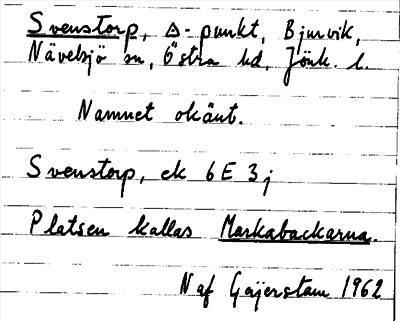 Svenstorp, △-punkt, Bjurvik,
Nävelsjö sn, Östra hd, Jönk. l.
Namnet okänt.
Svenstorp, ek 6E 3j
Platsen kallas Markabackarna.
N af Geijerstam 1962